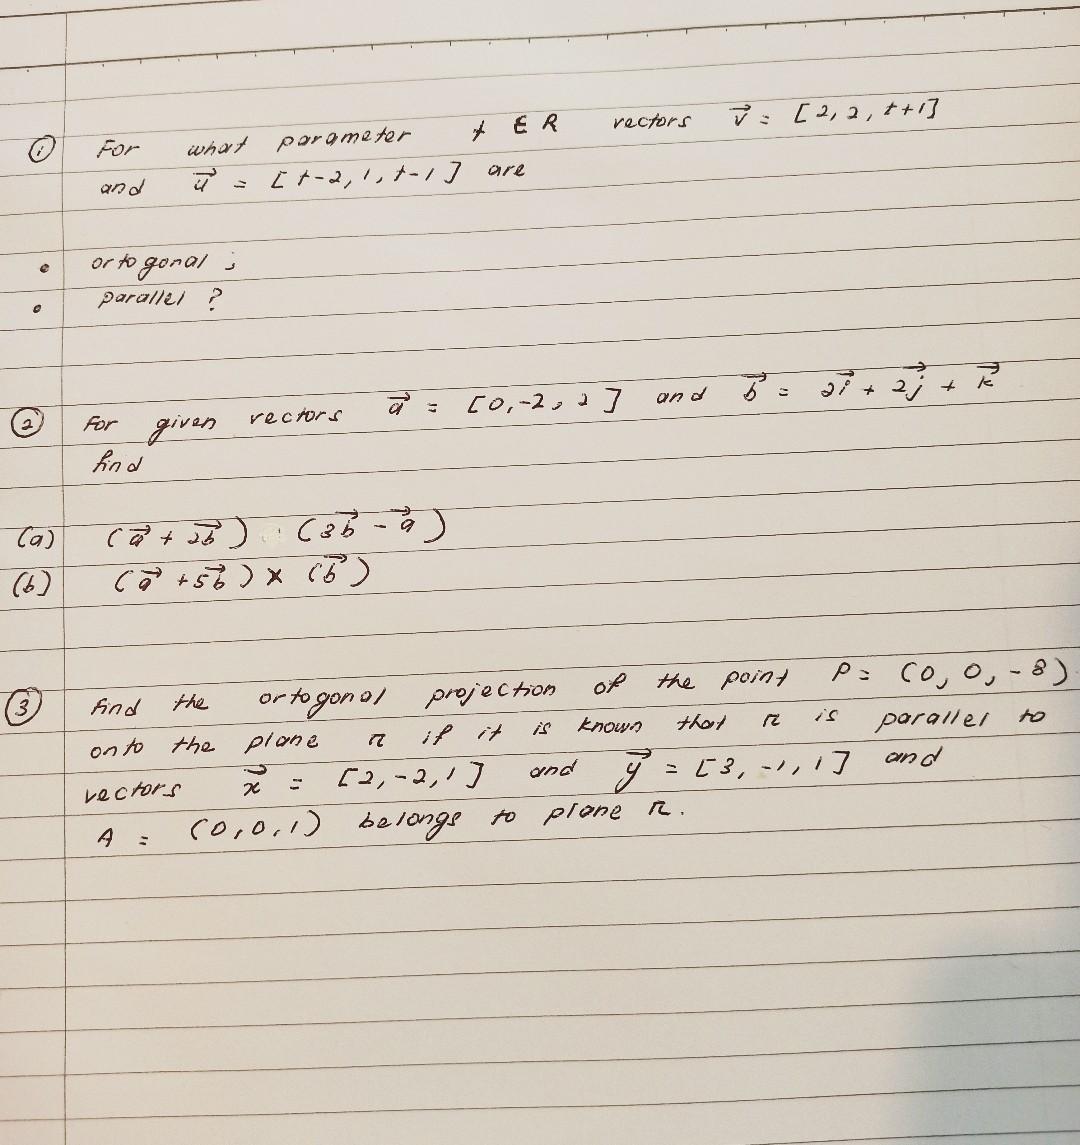 ① For what parameter t ∈ R vectors v⃗ = [2, 2, t+1]
and u⃗ = [t-2, 1, t-1] are
• ortogonal ;
• parallel ?
② For given vectors a⃗ = [0, -2, 2] and b⃗ = 2i⃗ + 2j⃗ + k⃗
find
(a) (a⃗ + 2b⃗) (3b⃗ - a⃗)
(b) (a⃗ + 5b⃗) × (b⃗)
③ Find the ortogonal projection of the point P = (0, 0, -8)
onto the plane π if it is known that π is parallel to
vectors x⃗ = [2, -2, 1] and y⃗ = [3, -1, 1] and
A = (0, 0, 1) belongs to plane π.